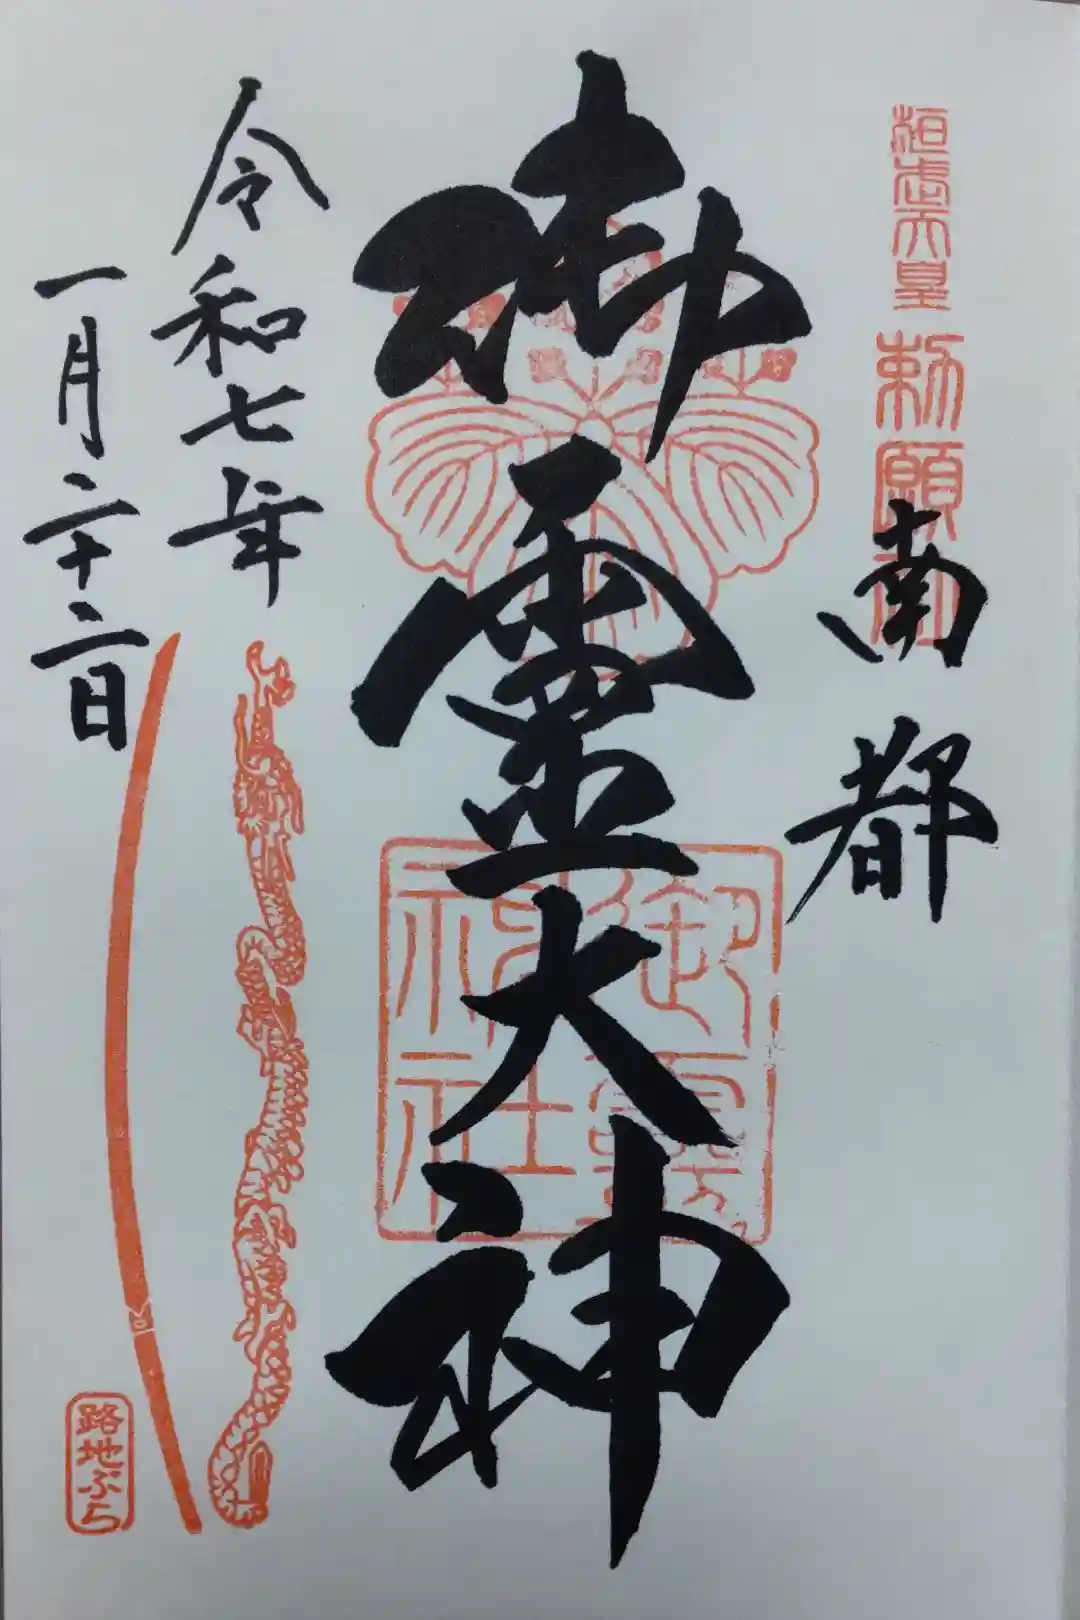 桓武天皇
勅願所
南都
御霊大神
御霊
神社
令和七年
一月二十二日
路地ぶら